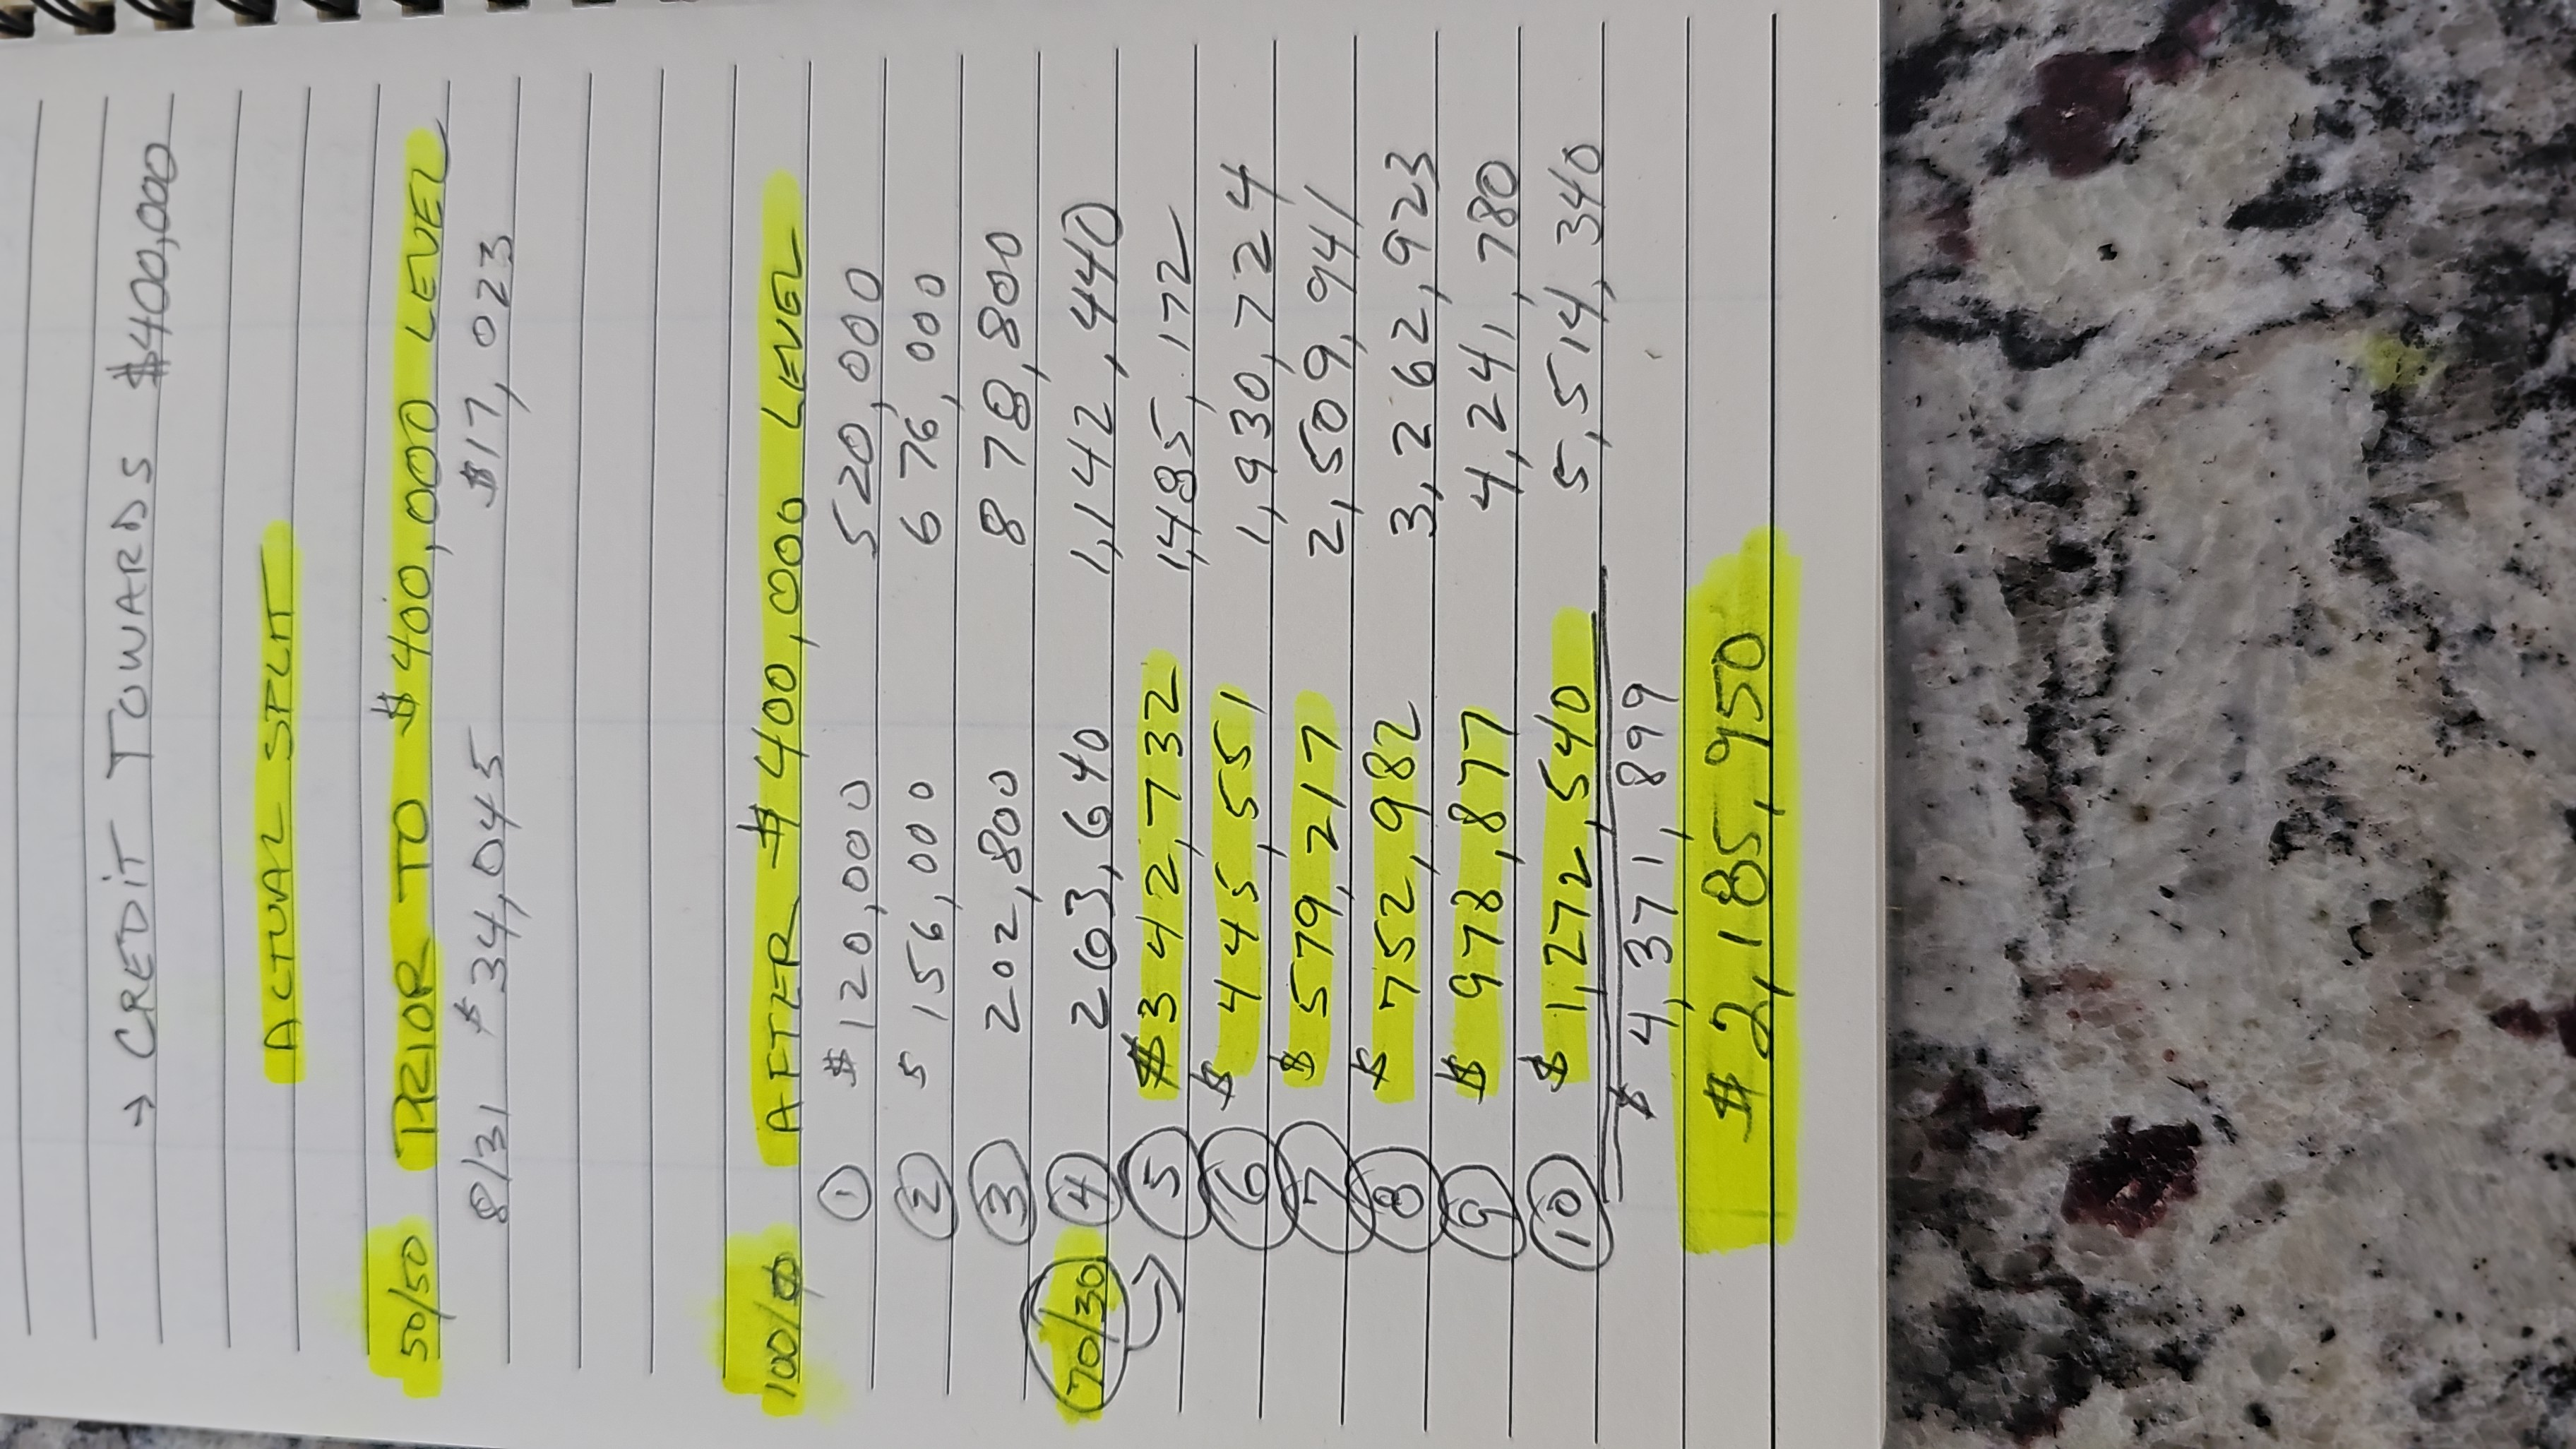 → CREDIT TOWARDS $400,000
ACTUAL SPLIT
50/50 PRIOR TO $400,000 LEVEL
8/31 $34,045 $17,023
100/0 AFTER $400,000 LEVEL
① $120,000 520,000
② $156,000 676,000
③ 202,800 878,800
70/30 ④ 263,640 1,142,440
⑤ $342,732 1,485,172
⑥ $445,551 1,930,724
⑦ $579,217 2,509,941
⑧ $752,982 3,262,923
⑨ $978,877 4,241,780
⑩ $1,272,540 5,514,340
$4,371,899
$2,185,950